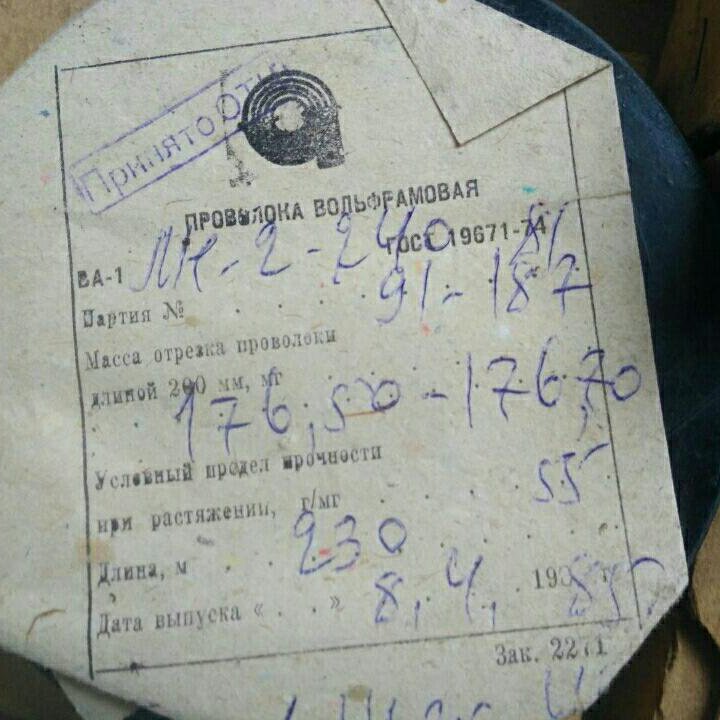 Принято ОТК
ПРОВОЛОКА ВОЛЬФРАМОВАЯ
ВА-1 ГОСТ 19671-74
Партия № . . . . 91-187
Масса отрезка проволоки
длиной 200 мм, мг
176,50-176,70
Условный предел прочности
при растяжении, г/мг . . . . 55
Длина, м . . 230
Дата выпуска « . . » 8.4. 1985 г.
Зак. 2271